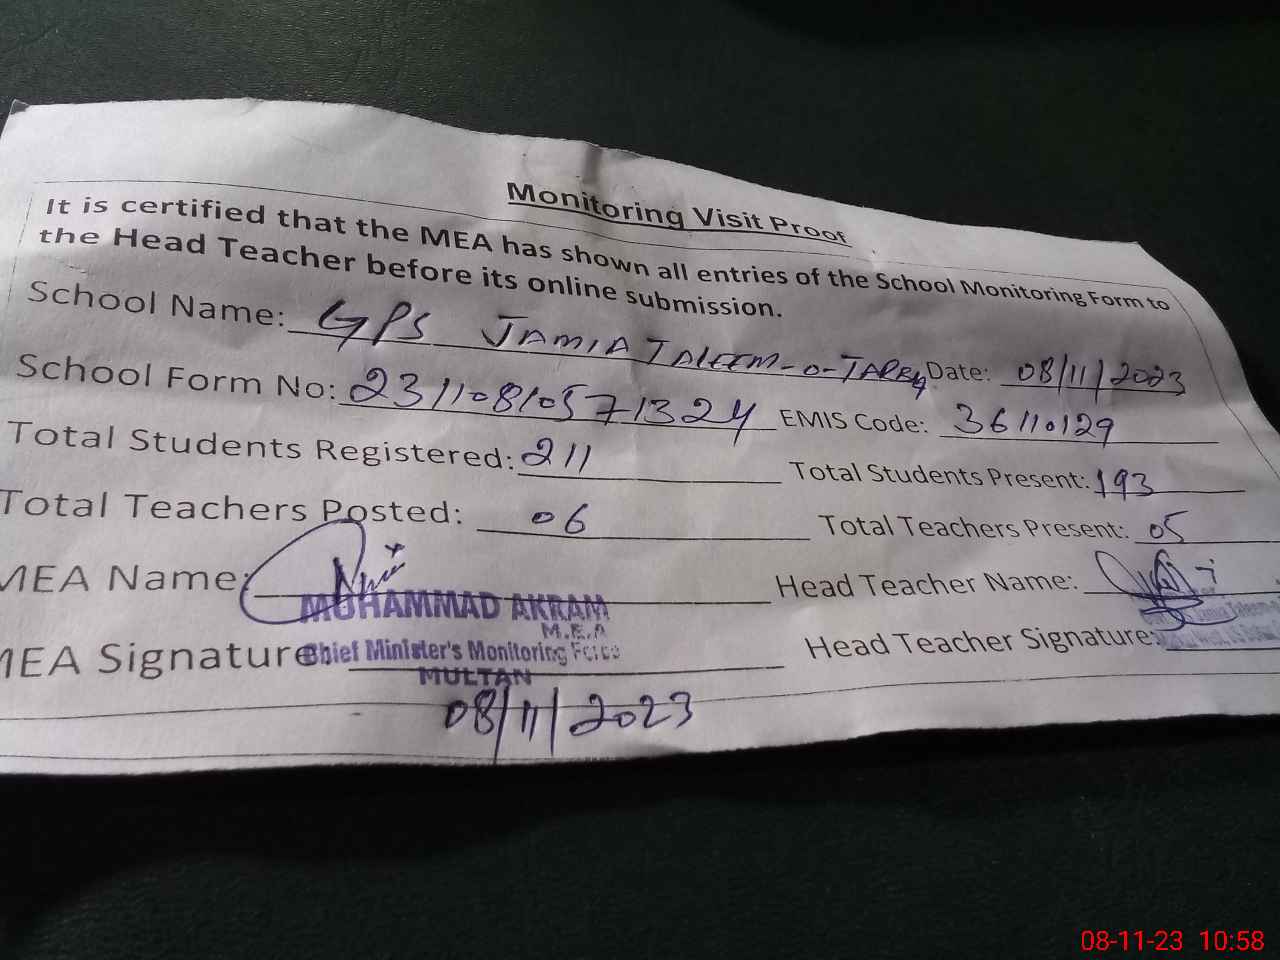 Monitoring Visit Proof
It is certified that the MEA has shown all entries of the School Monitoring Form to
the Head Teacher before its online submission.
School Name: GPS JAMIA TALEEM-O-TARBQ Date: 08/11/2023
School Form No: 23110810571324 EMIS Code: 36110129
Total Students Registered: 211 Total Students Present: 193
Total Teachers Posted: 06 Total Teachers Present: 05
MEA Name: Head Teacher Name:
MUHAMMAD AKRAM
M.E.A
MEA Signature Chief Minister's Monitoring Force Head Teacher Signature:
MULTAN
08/11/2023
08-11-23 10:58